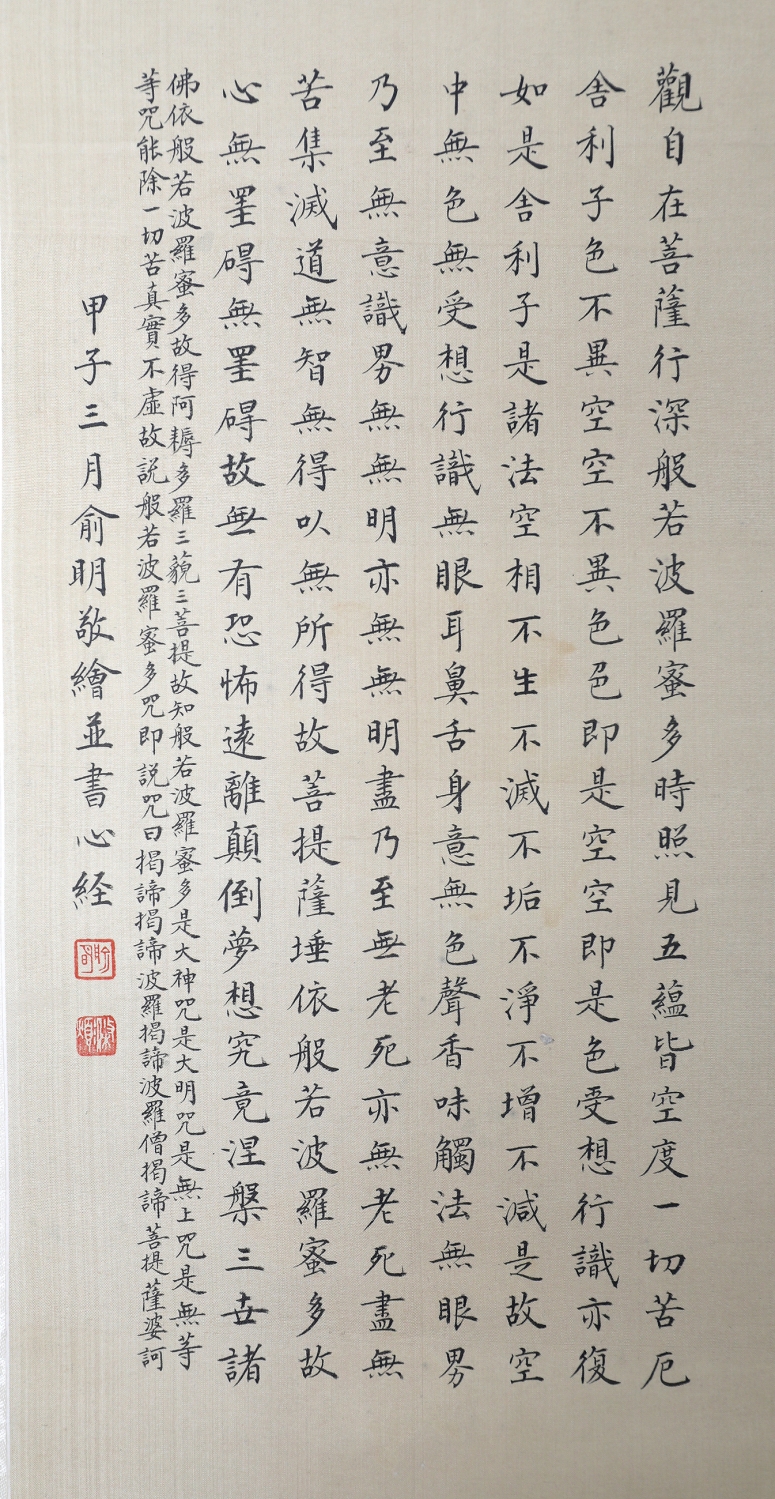 觀自在菩薩行深般若波羅蜜多時照見五蘊皆空度一切苦厄
舎利子色不異空空不異色色即是空空即是色受想行識亦復
如是舎利子是諸法空相不生不滅不垢不淨不增不減是故空
中無色無受想行識無眼耳鼻舌身意無色聲香味觸法無眼界
乃至無意識界無無明亦無無明盡乃至無老死亦無老死盡無
苦集滅道無智無得以無所得故菩提薩埵依般若波羅蜜多故
心無罣碍無罣碍故無有恐怖遠離顛倒夢想究竟涅槃三世諸
佛依般若波羅蜜多故得阿耨多羅三藐三菩提故知般若波羅蜜多是大神咒是大明咒是無上咒是無等
等咒能除一切苦真實不虛故説般若波羅蜜多咒即説咒曰揭諦揭諦波羅揭諦波羅僧揭諦菩提薩婆訶
甲子三月俞明敬繪並書心経